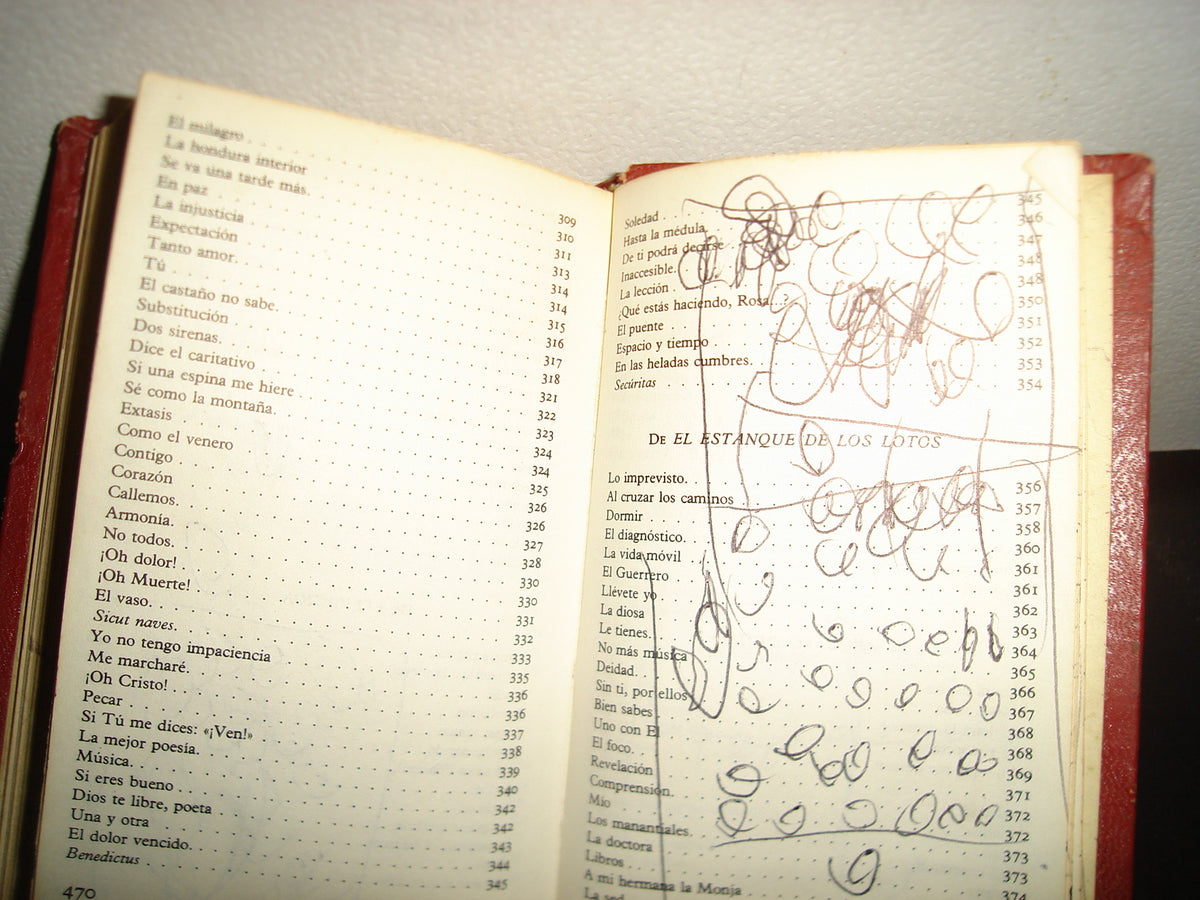 El milagro 309
La hondura interior 310
Se va una tarde más. 311
En paz 313
La injusticia 314
Expectación 314
Tanto amor. 315
Tú 316
El castaño no sabe. 317
Substitución 318
Dos sirenas. 321
Dice el caritativo 322
Si una espina me hiere 323
Sé como la montaña. 324
Extasis 324
Como el venero 325
Contigo 326
Corazón 326
Callemos. 327
Armonía. 328
No todos. 330
¡Oh dolor! 330
¡Oh Muerte! 331
El vaso. 332
Sicut naves. 333
Yo no tengo impaciencia 335
Me marcharé. 336
¡Oh Cristo! 336
Pecar 337
Si Tú me dices: «¡Ven!» 338
La mejor poesía. 339
Música. 340
Si eres bueno 342
Dios te libre, poeta 342
Una y otra 343
El dolor vencido. 344
Benedictus 345
470
Soledad 345
Hasta la médula. 346
De ti podrá decirse 347
Inaccesible. 348
La lección 348
¿Qué estás haciendo, Rosa...? 350
El puente 351
Espacio y tiempo 352
En las heladas cumbres. 353
Secúritas 354
De EL ESTANQUE DE LOS LOTOS
Lo imprevisto. 356
Al cruzar los caminos 357
Dormir 358
El diagnóstico. 360
La vida móvil 361
El Guerrero 361
Llévete yo 362
La diosa 363
Le tienes. 364
No más música 365
Deidad. 366
Sin ti, por ellos 367
Bien sabes 368
Uno con El 368
El foco. 369
Revelación 371
Comprensión. 372
Mío 372
Los manantiales. 373
La doctora 373
Libros 374
A mi hermana la Monja
La sed